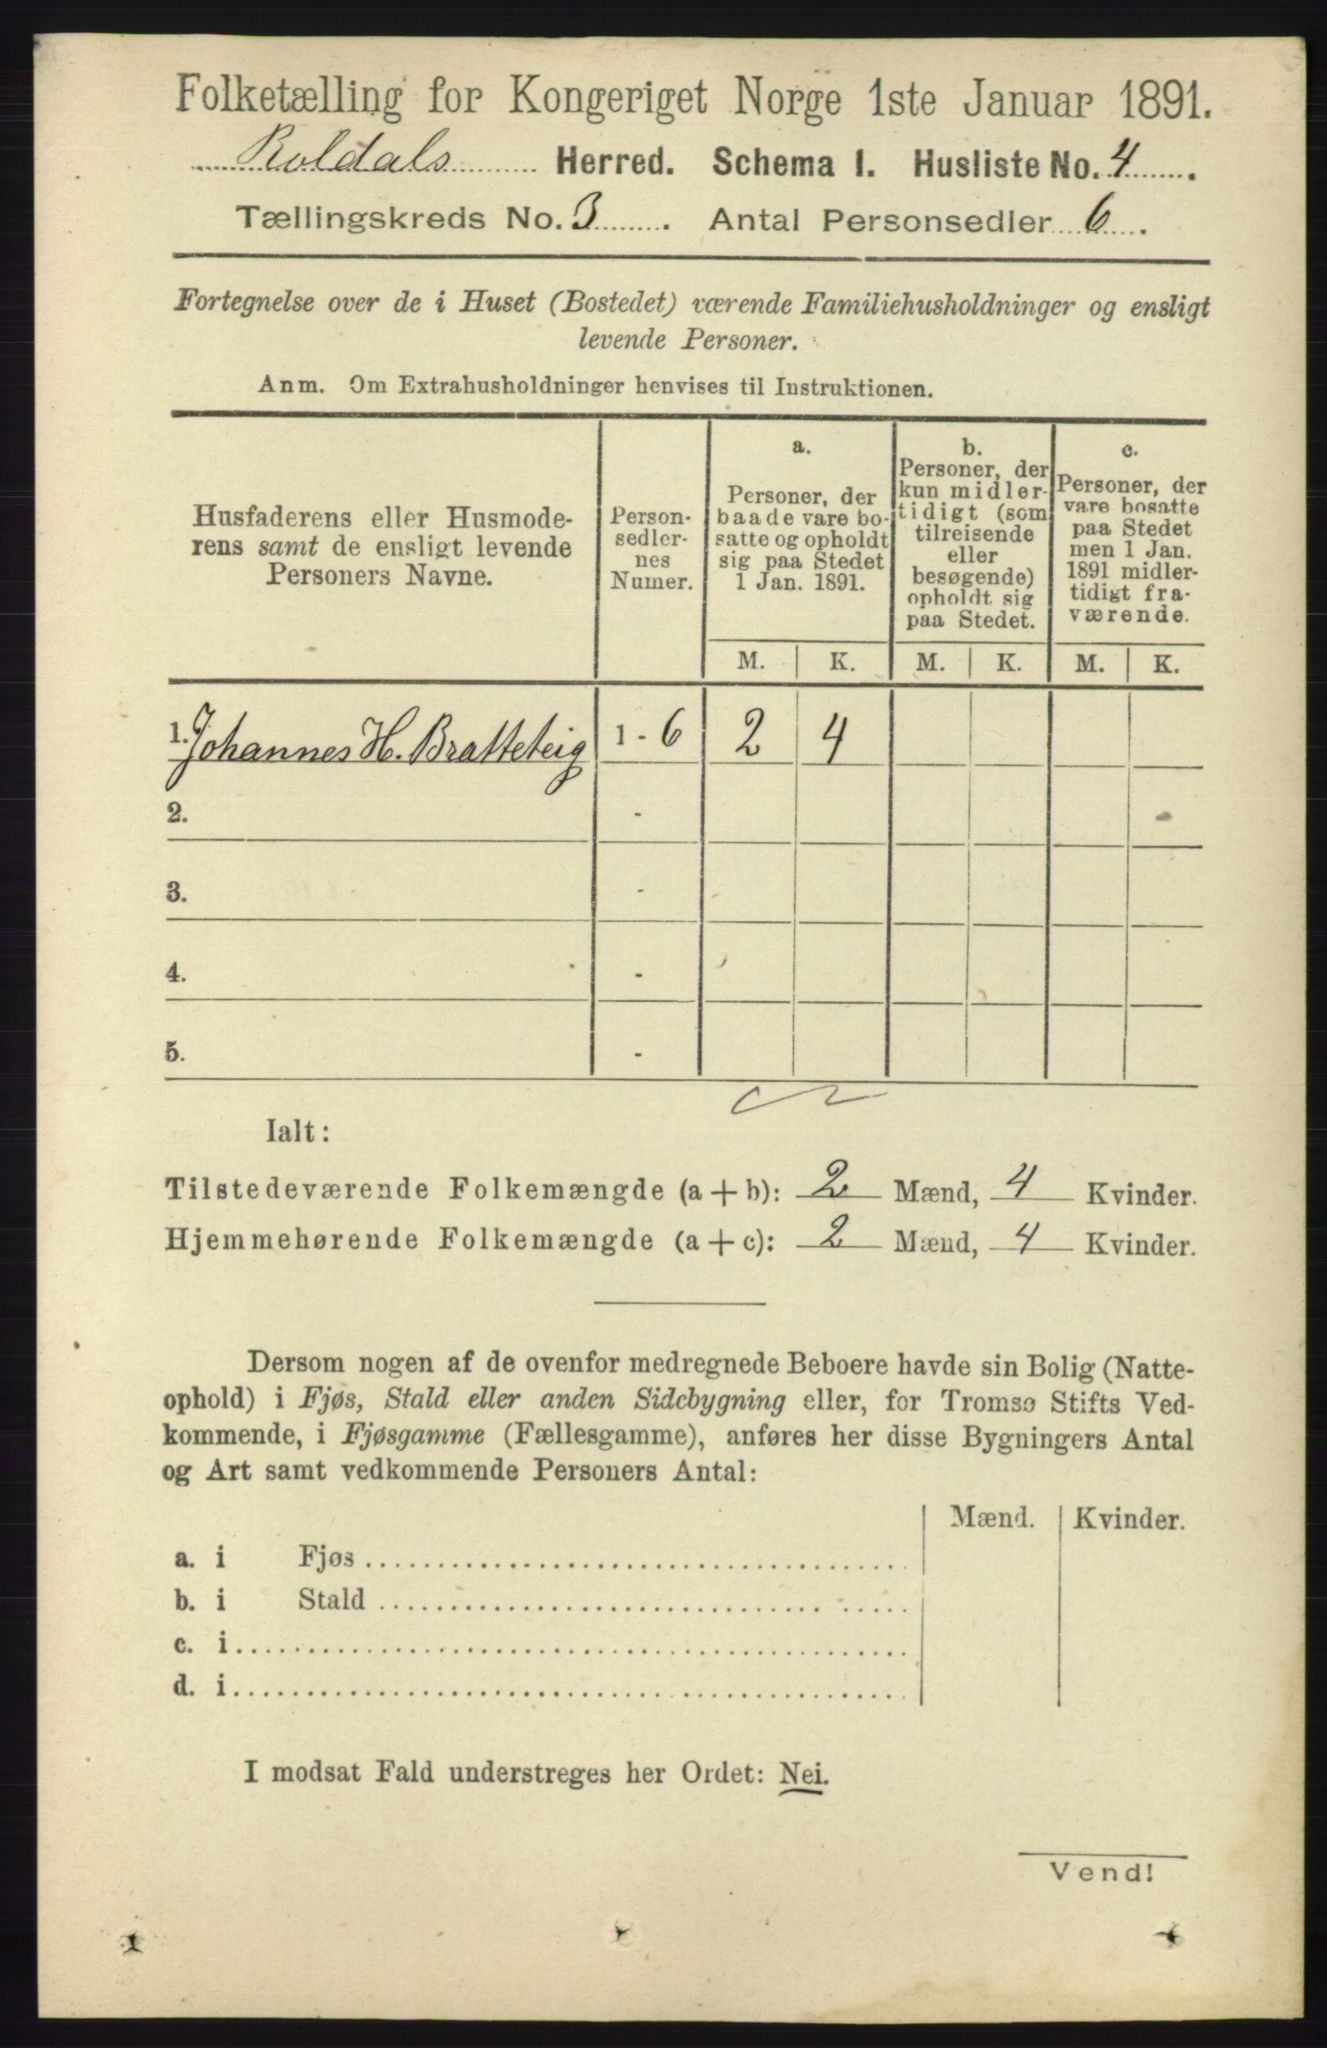 Folketælling for Kongeriget Norge 1ste Januar 1891.
Roldals Herred. Schema I. Husliste No. 4.
Tællingskreds No. 3. Antal Personsedler 6.
Fortegnelse over de i Huset (Bostedet) værende Familiehusholdninger og ensligt
levende Personer.
Anm. Om Extrahusholdninger henvises til Instruktionen.
Husfaderens eller Husmode-
rens samt de ensligt levende
Personers Navne.
Person-
sedler-
nes
Numer.
a.
Personer, der
baade vare bo-
satte og opholdt
sig paa Stedet
1 Jan. 1891.
b.
Personer, der
kun midler-
tidigt (som
tilreisende
eller
besøgende)
opholdt sig
paa Stedet.
c.
Personer, der
vare bosatte
paa Stedet
men 1 Jan.
1891 midler-
tidigt fra-
værende.
M. K. M. K. M. K.
1. Johannes H. Bratteteig 1 - 6 2 4
2. -
3. -
4. -
5. -
Ialt:
Tilstedeværende Folkemængde (a + b): 2 Mænd, 4 Kvinder.
Hjemmehørende Folkemængde (a + c): 2 Mænd, 4 Kvinder.
Dersom nogen af de ovenfor medregnede Beboere havde sin Bolig (Natte-
ophold) i Fjøs, Stald eller anden Sidebygning eller, for Tromsø Stifts Ved-
kommende, i Fjøsgamme (Fællesgamme), anføres her disse Bygningers Antal
og Art samt vedkommende Personers Antal:
Mænd. Kvinder.
a. i Fjøs
b. i Stald
c. i
d. i
I modsat Fald understreges her Ordet: Nei.
Vend!